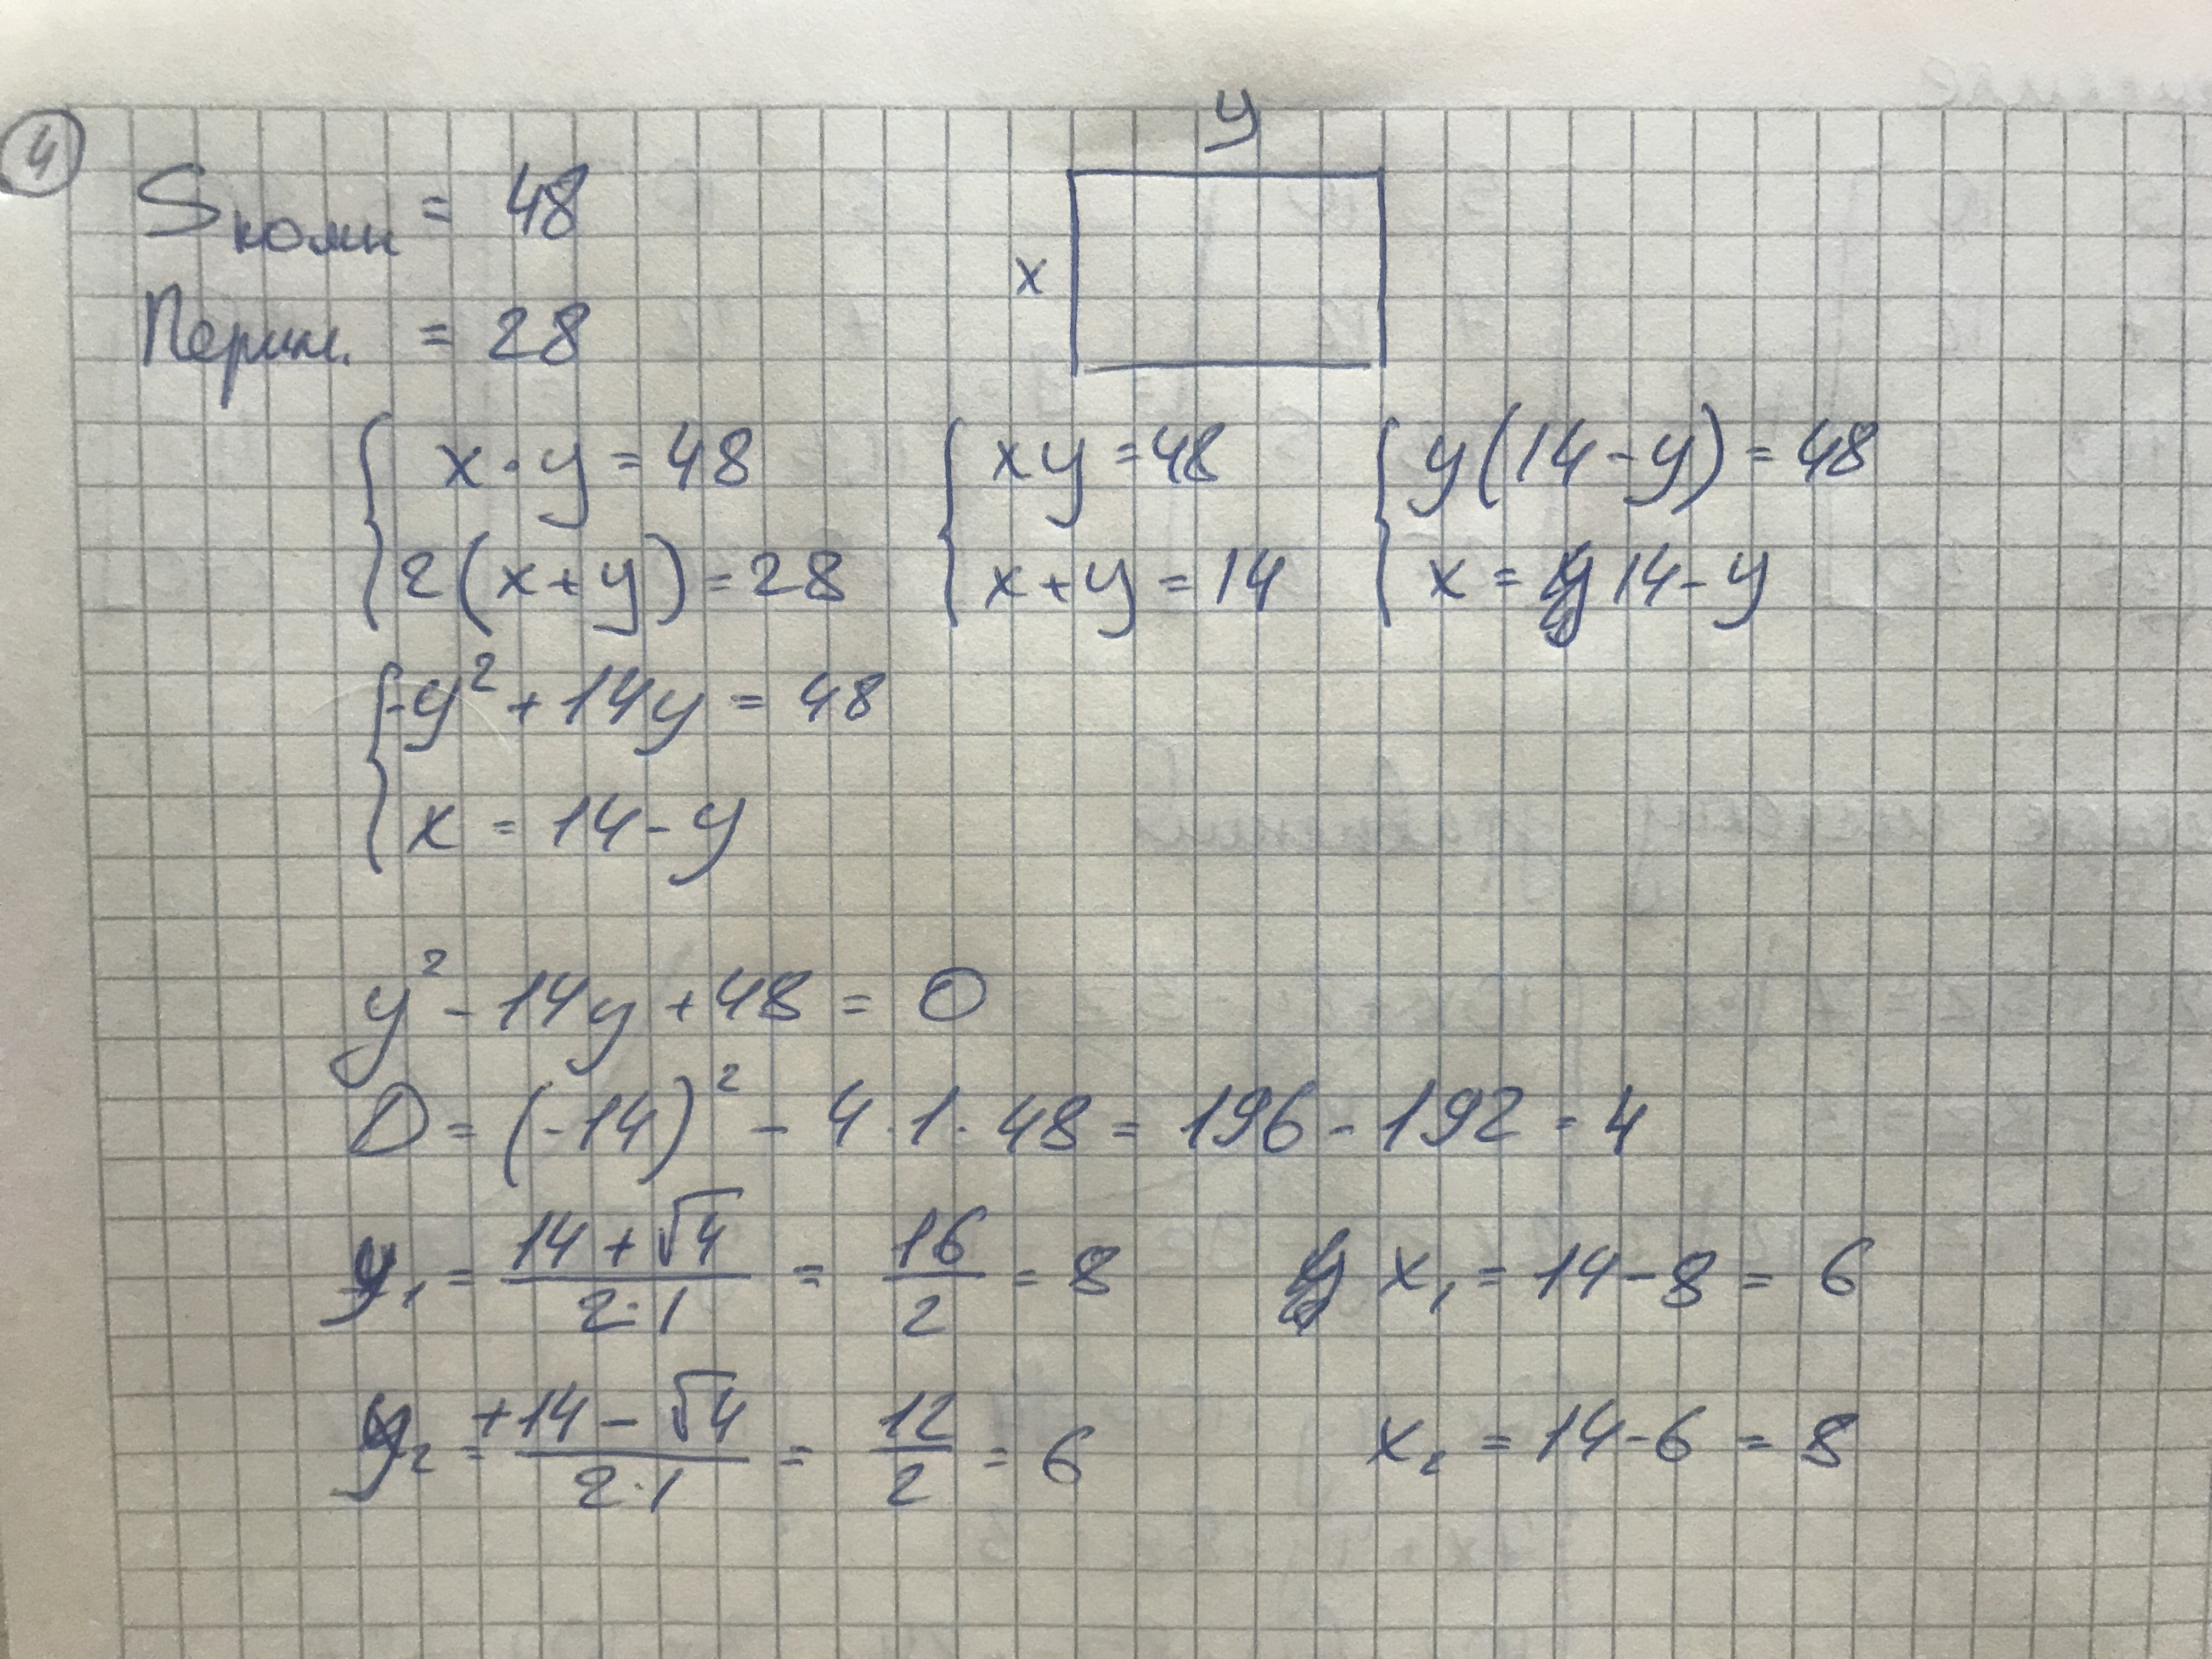 4
y
Sкомн = 48
x
Перим. = 28
{ x · y = 48 { xy = 48 { y(14 - y) = 48
{ 2(x + y) = 28 { x + y = 14 { x = 14 - y
{ -y² + 14y = 48
{ x = 14 - y
y² - 14y + 48 = 0
D = (-14)² - 4 · 1 · 48 = 196 - 192 = 4
y₁ = (14 + √4)/(2·1) = 16/2 = 8 x₁ = 14 - 8 = 6
y₂ = (+14 - √4)/(2·1) = 12/2 = 6 x₂ = 14 - 6 = 8